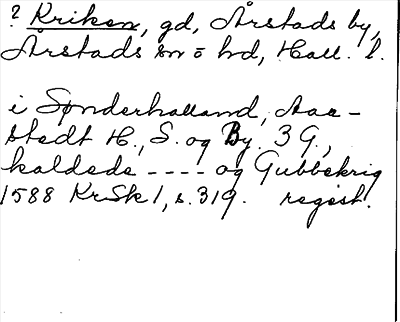 ? Kriken, gd, Årstads by,
Årstads sn o hd, Hall. l.
i Sønderhalland, Aar-
stedt H., S. og By. 3 G.,
kaldede ---- og Gubbekrig
1588 KrSk 1, s. 319. regest.